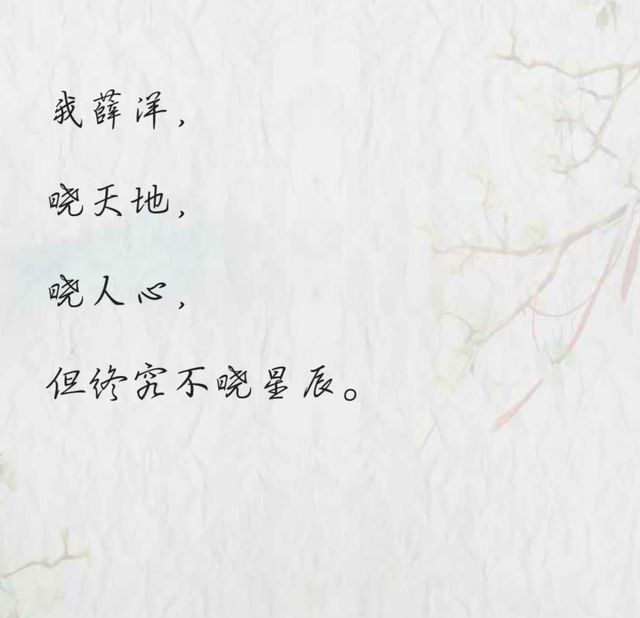 我薛洋，
晓天地，
晓人心，
但终究不晓星辰。